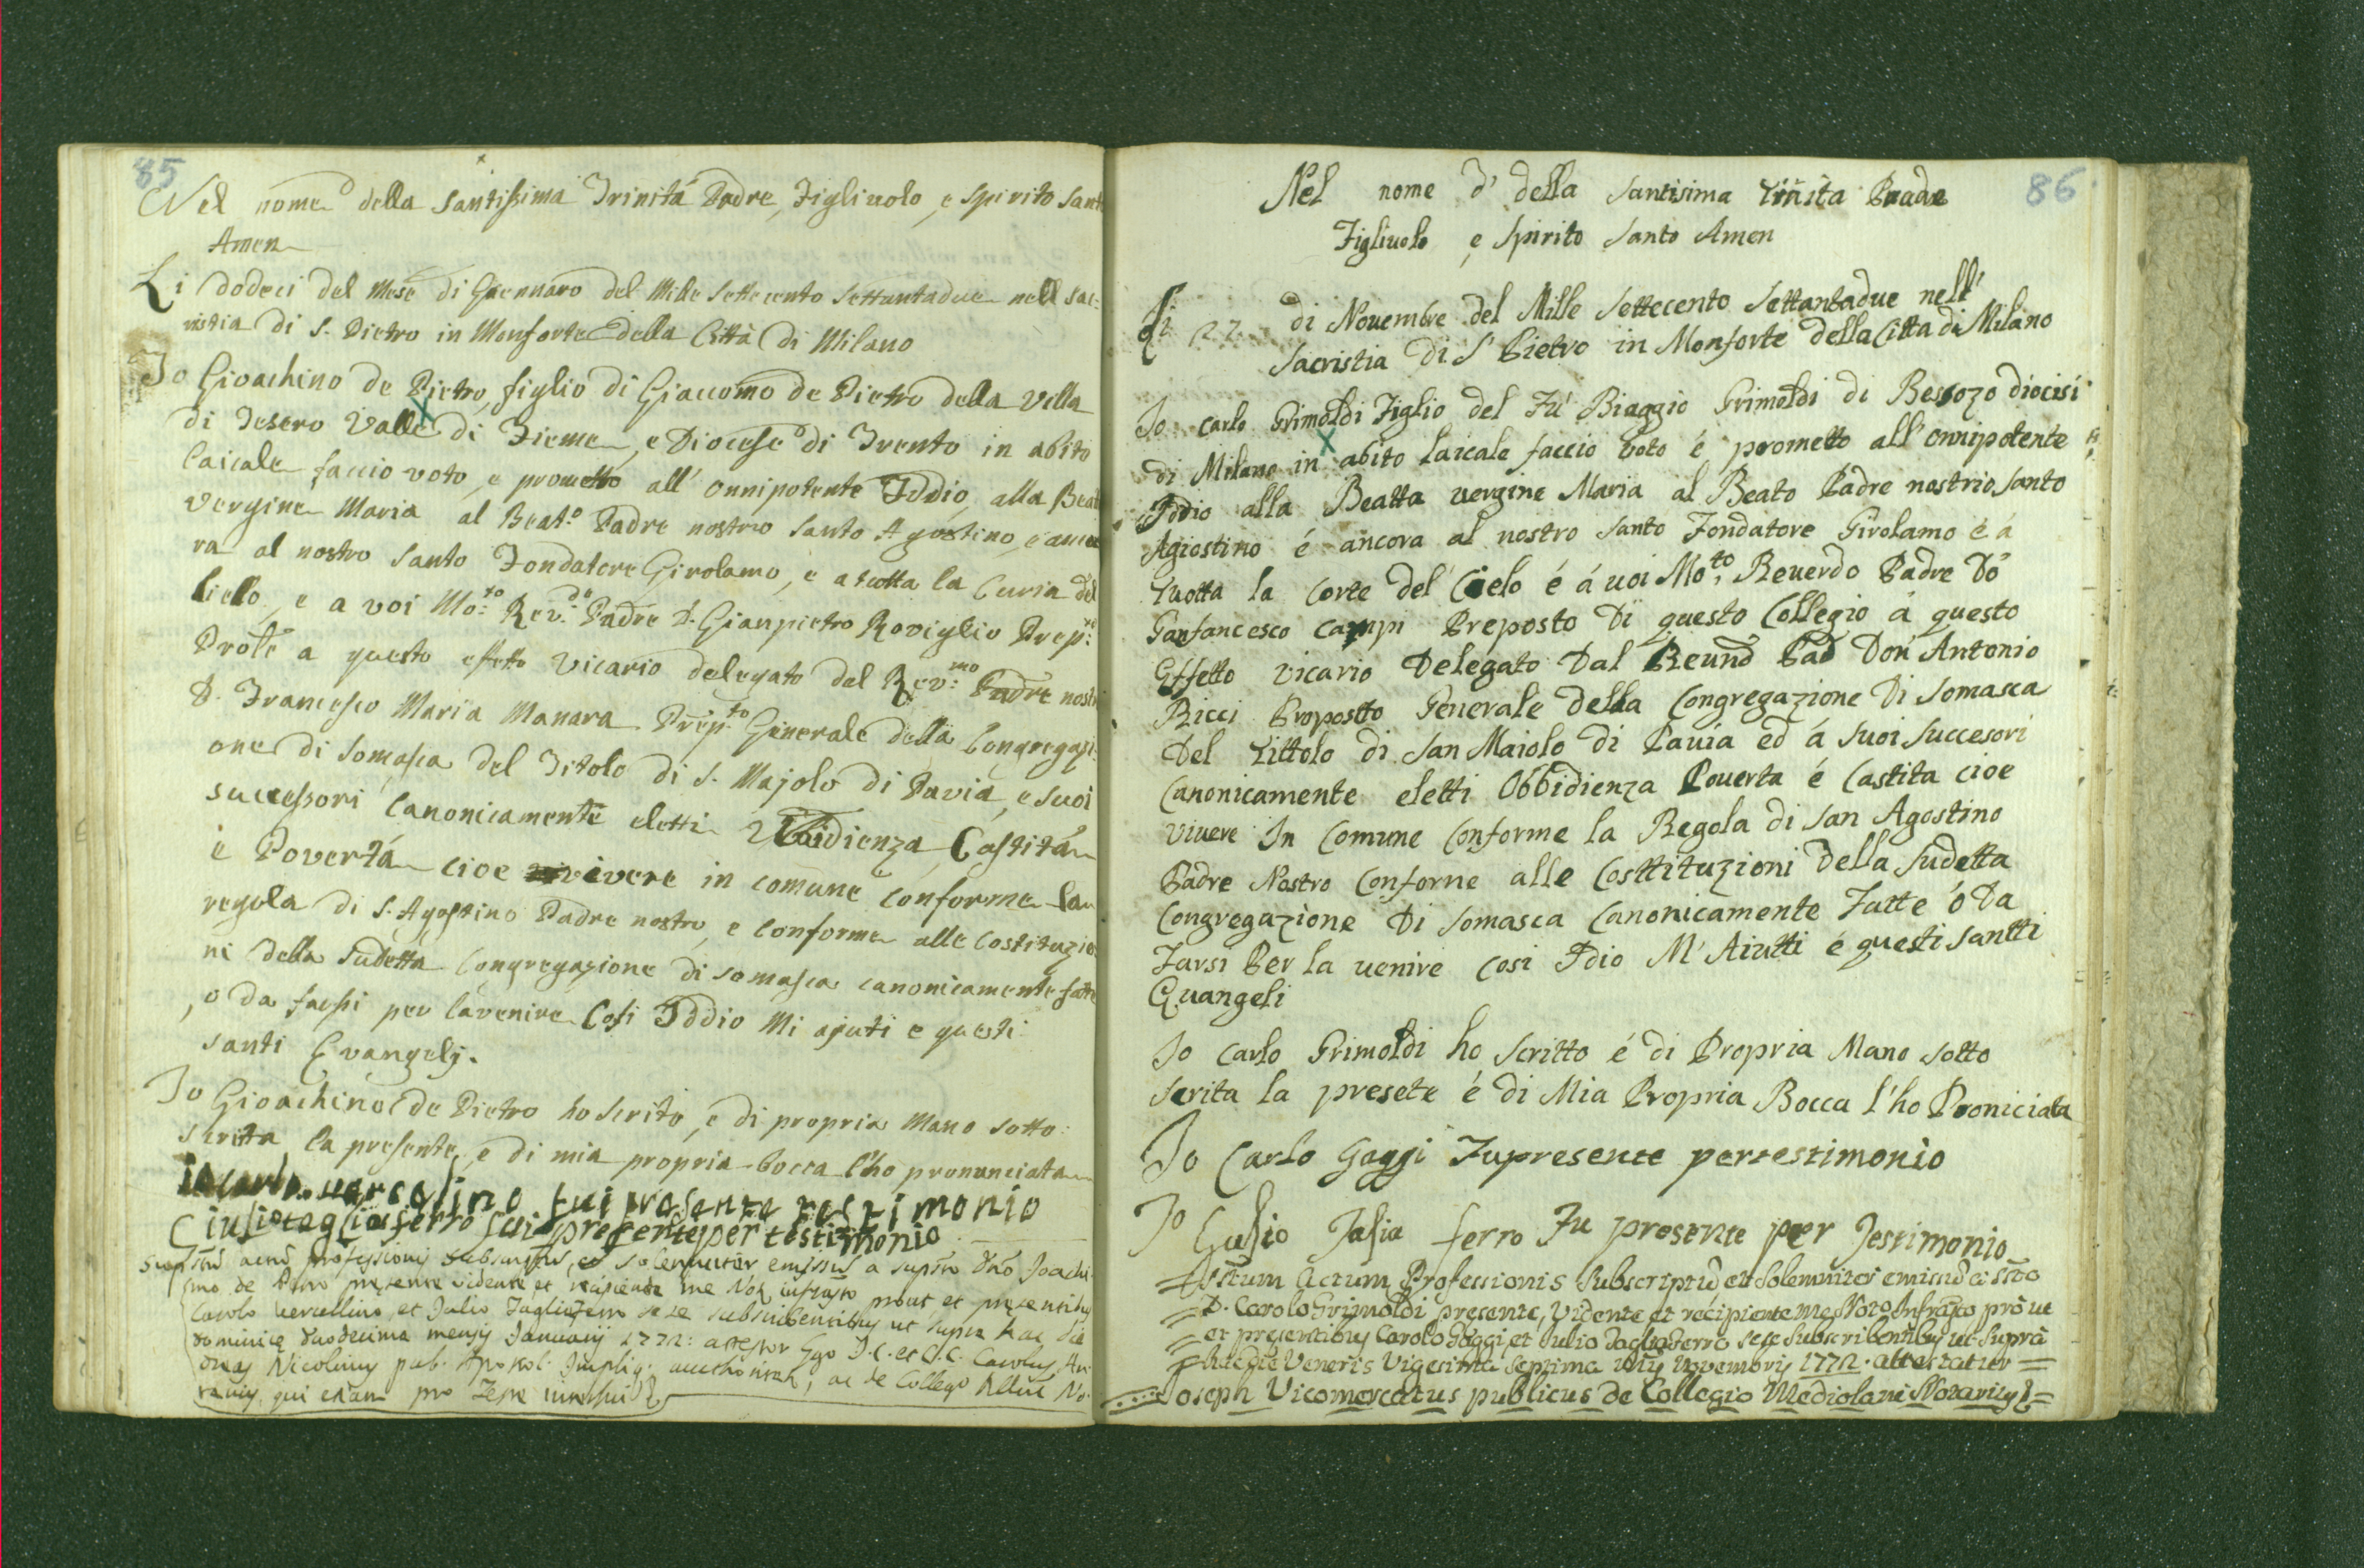 85
Nel nome della Santissima Trinitá Padre, Figliuolo, e Spirito Sant
Amen
Li dodeci del Mese di Gennaro del Mille Settecento Settantadue nell Sac:
ristia di S. Pietro in Monforte della Città di Milano
Io Gioachino de Pietro, figlio di Giacomo de Pietro della Villa
di Tesero Valle di Fieme, e Diocese di Trento in abito
laicale faccio voto, e prometto all' onnipotente Iddio, alla Bea
Vergine Maria al Beat.o Padre nostro Santo Agostino, e anco
ra al nostro Santo Fondatore Girolamo, e a tutta la Curia del
Cielo, e a voi Mo:to Rev:do Padre D. Gianpietro Roviglio Prep:
a questo effetto Vicario delegato dal Rev:mo Padre nost
D. Francesco Maria Manara Prep:to Generale della Congregazi:
one di Somasca del Titolo di S. Majolo di Pavia, e suoi
successori Canonicamente eletti Ubbidienza, Castitá
è Povertá cioe vivere in comune conforme la
regola di S. Agostino Padre nostro, e conforme alle Costituzio
ni della Sudetta Congregazione di Somasca canonicamente fatte
, o da farsi per lavenire Cosi Iddio Mi ajuti e questi
Santi Evangelj.
Io Gioachino de Pietro ho scrito, e di propria Mano sotto:
scritta la presente, e di mia propria bocca l'ho pronunciata
io carlo vercelino fui presente testimonio
Giulio tagliaferro fui presente per testimonio
professionis subscriptũ, et solemniter emissũ a suptõ Dño Joachi
mo de Petro presente vidente et recipiente me Notº infrascto prout et presentibus
Carolo Vercellino, et Julio Tagliaferro sese subscribentibus ut supra hac die
Dominica duodecima mensis Januarij 1772: attestor Ego J.C. et C.C. Carolus An:
dreas Nicolinus pub. Apostol. Imperliq: aucthoritate, ac de Collegº No:
tarius, qui etiam pro
86
Nel nome d' della Santisima Trinita Padre
Figliuolo, e Spirito Santo Amen
Li 27 di Novembre del Mille Settecento Settantadue nell'
Sacristia Di S' Pietro in Monforte della Citta di Milano
Io Carlo Grimoldi Figlio del Fu' Biaggio Grimoldi di Besozo diocisi
di Milano in abito laicale faccio voto é prometto all' onnipotente
Iddio alla Beatta vergine Maria al Beato Padre nostrio Santo
Agiostino é ancora al nostro Santo Fondatore Girolamo é á
Tuotta la Corte del Cielo é á voi Mo:to Reuerdo Padre Do
Ganfancesco Campi Preposto Di questo Collegio á questo
Effetto vicario Delegato Dal Reund Pad Don Antonio
Ricci Propostto Generale della Congregazione Di Somasca
Del Tittolo di San Maiolo di Pauia ed á Suoi Succesori
Canonicamente eletti Obbidienza Pouerta é Castita cioe
vivere In Comune Conforme la Regola di San Agostino
Padre Nostro Conforne alle Costtituzioni Della Sudetta
Congregazione Di Somasca Canonicamente Fatte ó Da
Farsi Per la uenire Cosi Idio M' Aiutti é questi Santti
Euangeli
Io Carlo Grimoldi ho Scritto é di Propria Mano Sotto
Scrita la presete é di Mia Propria Bocca l'ho Proniciata
Io Carlo Gaggi Fupresente pertestimonio
Io Gulio Talia ferro Fu presente per Testimonio
Actum Professionis Subscriptũ et Solemniter emissũ
D. Carolo Grimoldi presente, Vidente et recipiente me Noto Infrascto pró ut
et presentibus Carolo Gaggi, et Julio Tagliaferro sese Subscribentibus ut Suprà
hac die Veneris Vigesima Septima Novembris 1772. attestatur
Joseph Vicomercatus publicus de Collegio Mediolani Notarius